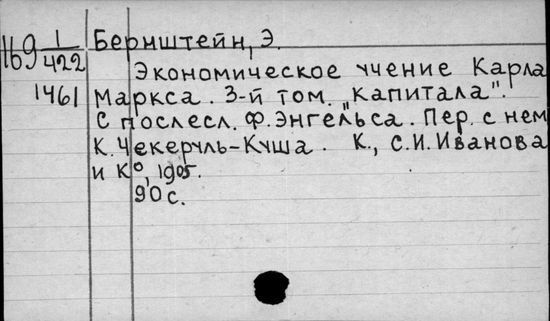 169 1/422 Бернштейн, Э.
1461
Экономическое учение Карла
Маркса. 3-й том. "Капитала".
С послесл. Ф. Энгельса. Пер. с нем
К. Чекеруль-Куша. К., С.И. Иванова
и К⁰, 1905.
90 с.